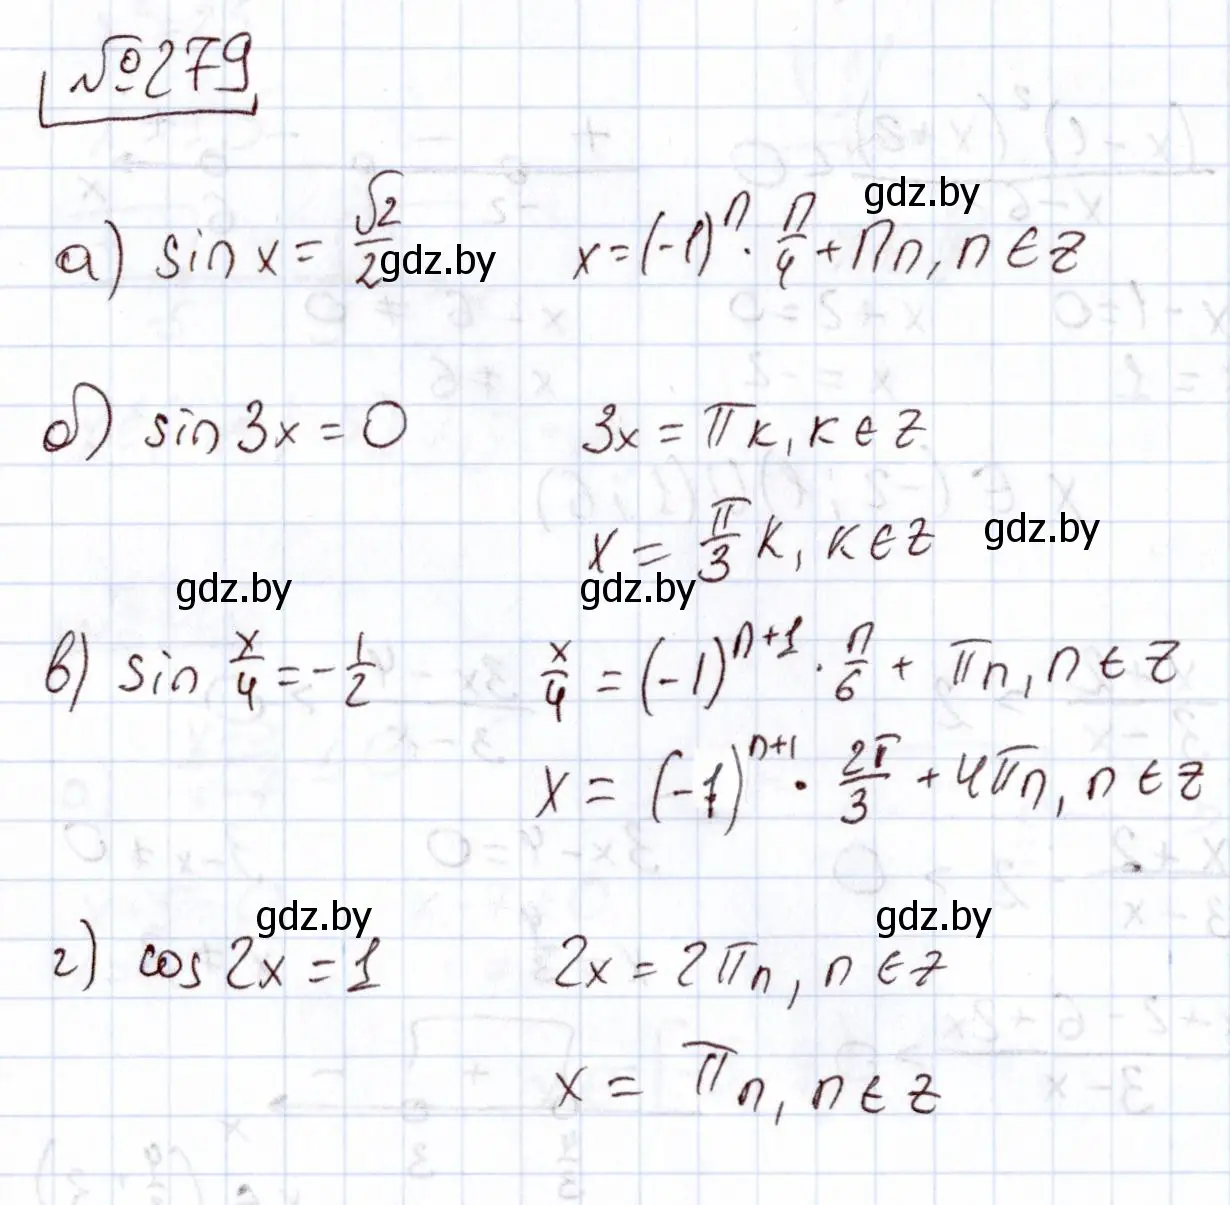 №279
а) sin x = √2/2 x = (-1)^n · π/4 + πn, n ∈ Z
gdz.by
gdz.by
б) sin 3x = 0 3x = πk, k ∈ Z
x = π/3 k, k ∈ Z
gdz.by
gdz.by gdz.by
в) sin x/4 = -1/2 x/4 = (-1)^{n+1} · π/6 + πn, n ∈ Z
x = (-1)^{n+1} · 2π/3 + 4πn, n ∈ Z
gdz.by gdz.by
г) cos 2x = 1 2x = 2πn, n ∈ Z
x = πn, n ∈ Z